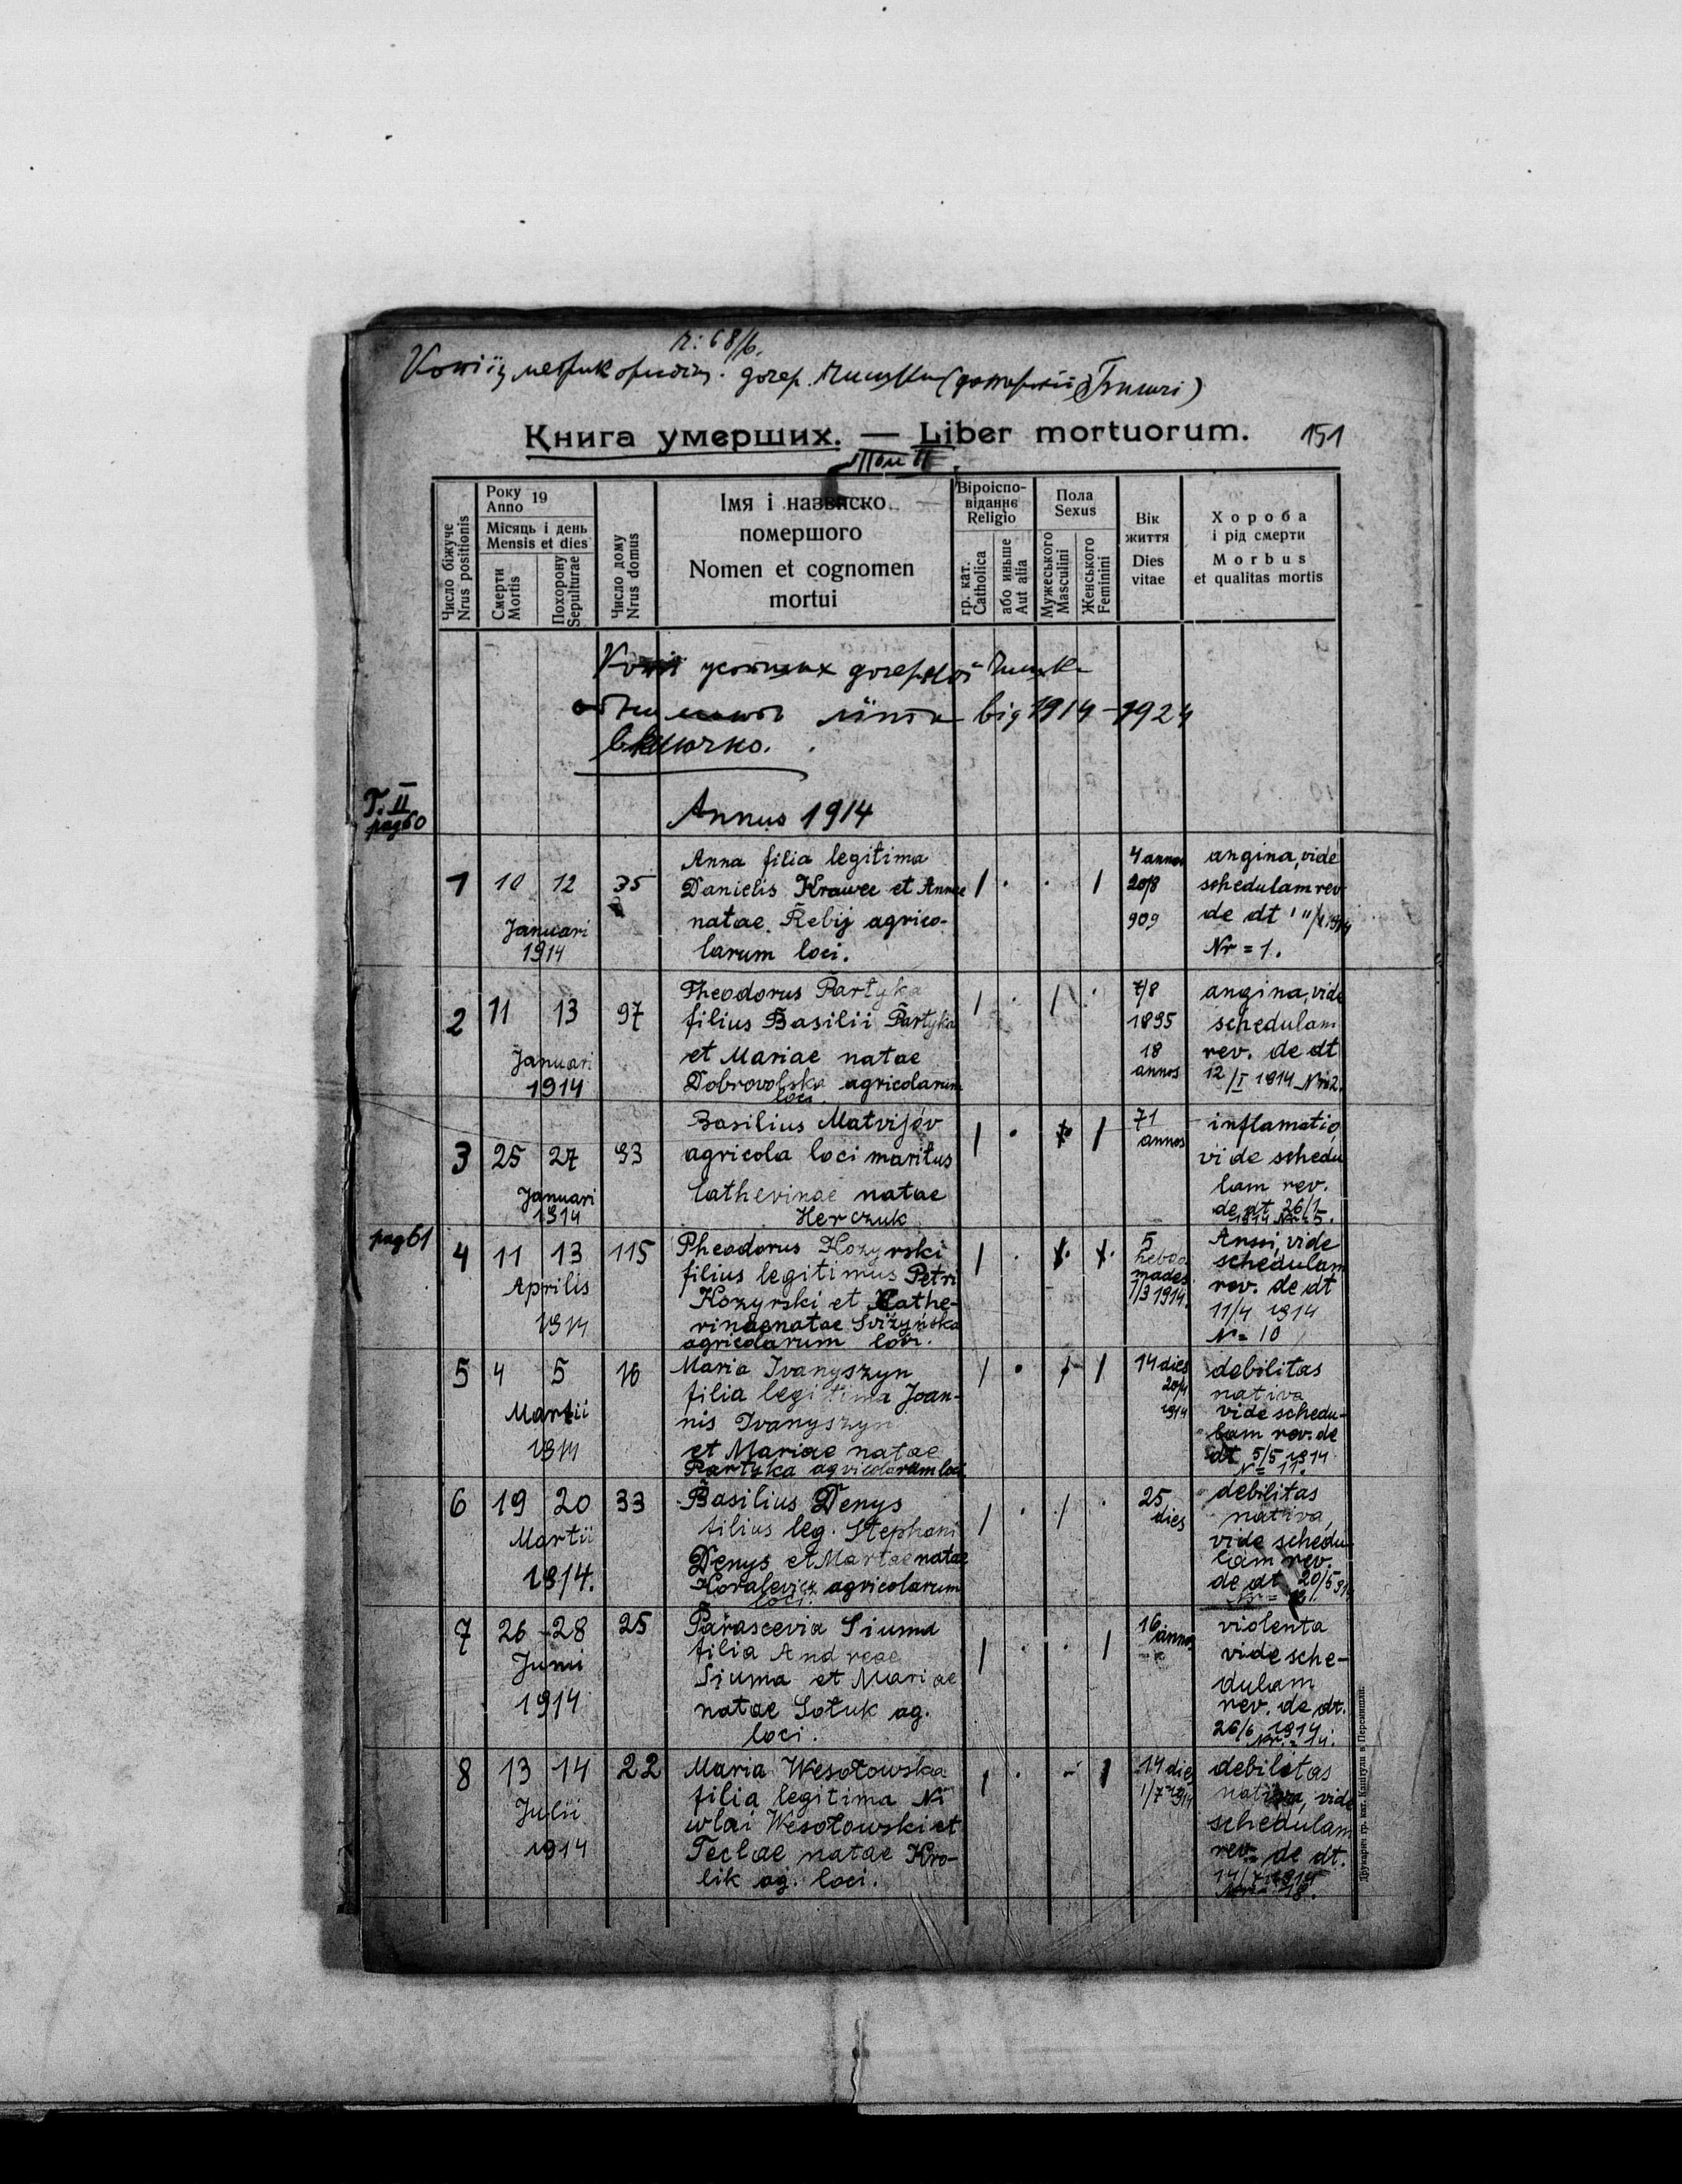 ч: 68/6.
Книга умерших. — Liber mortuorum. 151
Том II
Число біжуче
Nrus positionis
Року 19
Anno
Місяць і день
Mensis et dies
Смерти
Mortis
Похорону
Sepulturae
Число дому
Nrus domus
Імя і назвиско
помершого
Nomen et cognomen
mortui
Віроіспо-
віданнє
Religio
гр. кат.
Catholica
або иньше
Aut alia
Пола
Sexus
Мужеського
Masculini
Женського
Feminini
Вік
життя
Dies
vitae
Хороба
і рід смерти
Morbus
et qualitas mortis
від 1914-1924
включно.
T. II
pag 60
Annus 1914
1 10 12 Januari 1914 35
Anna filia legitima
Danielis Krawec et Annae
natae Rebij agrico-
larum loci.
4 annos
20/8
909
angina, vide
schedulam rev
de dt
Nr = 1.
2 11 13 Januari 1914 97
Theodorus Partyka
filius Basilii Partyka
et Mariae natae
Dobrovolska agricolarum
loci.
7/8
1895
18
annos
angina, vide
schedulam
rev. de dt
12/I 1914 Nr 2.
3 25 27 Januari 1914 93
Basilius Matvijóv
agricola loci maritus
Catherinae natae
Herczuk
71
annos
inflamatio,
vide schedu
lam rev.
de dt 26/1
1914 Nr 5.
pag 61
4 11 13 Aprilis 1914 115
Pheodorus Kozyrski
filius legitimus Petri
Kozyrski et Kathe-
rinae natae Svižynska
agricolarum loci.
5
hebdo
mades
1/3 1914.
vide
schedulam
rev. de dt
11/4 1914
N = 10
5 4 5 Martii 1914 16
Maria Ivanyszyn
filia legitima Joan-
nis Ivanyszyn
et Mariae natae
Partyka agricolarum loci.
14 dies
20/4
1914
debilitas
nativa
vide schedu-
lam rev. de
dt 5/5 1914
N = 11.
6 19 20 Martii 1914. 33
Basilius Denys
filius leg. Stephani
Denys et Martae natae
Kovalevicz agricolarum
loci.
25
dies
debilitas
nativa,
vide schedu
lam rev.
de dt 20/5 914
7 26-28 Junii 1914 25
Parascevia Siuma
filia Andreae
Siuma et Mariae
natae Sotuk ag.
loci.
16
annos
violenta
vide sche-
dulam
rev. de dt.
26/6 1914.
Nr. = 14.
8 13 14 Julii 1914 22
Maria Wesołowska
filia legitima Ni
colai Wesołowski et
Teclae natae Kro-
lik ag. loci.
14 dies
1/7 1914
debilitas
nativa, vide
schedulam
rev. de dt.
14/7 1914
Nr = 18.
Друкарня гр. кат. Капітули в Перемишли.